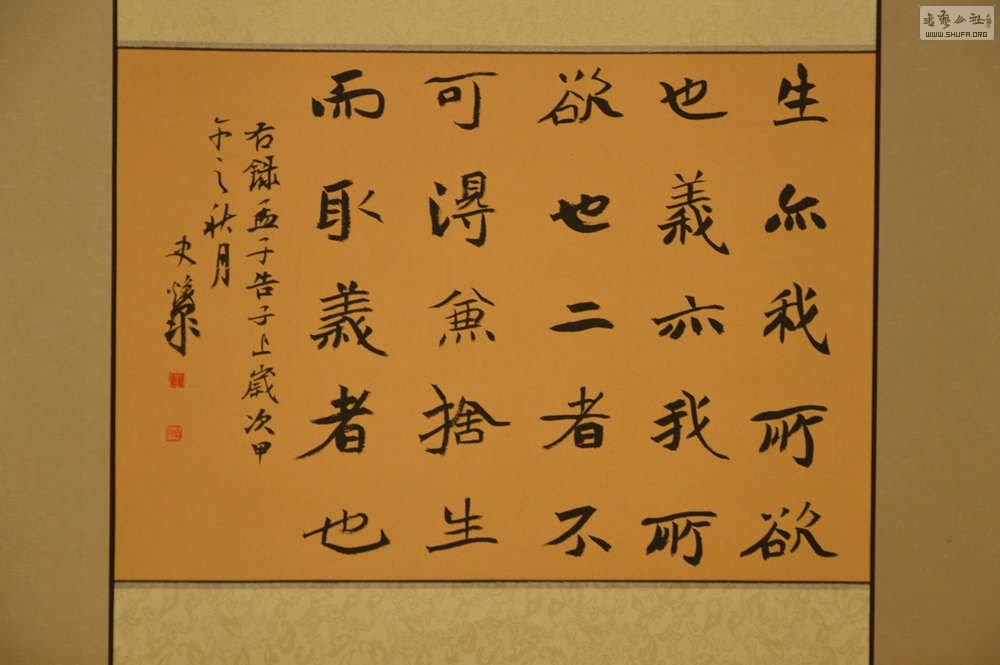 生亦我所欲
也義亦我所
欲也二者不
可得兼捨生
而取義者也
右録孟子告子上歲次甲
午之秋月
史
书艺公社
WWW.SHUFA.ORG